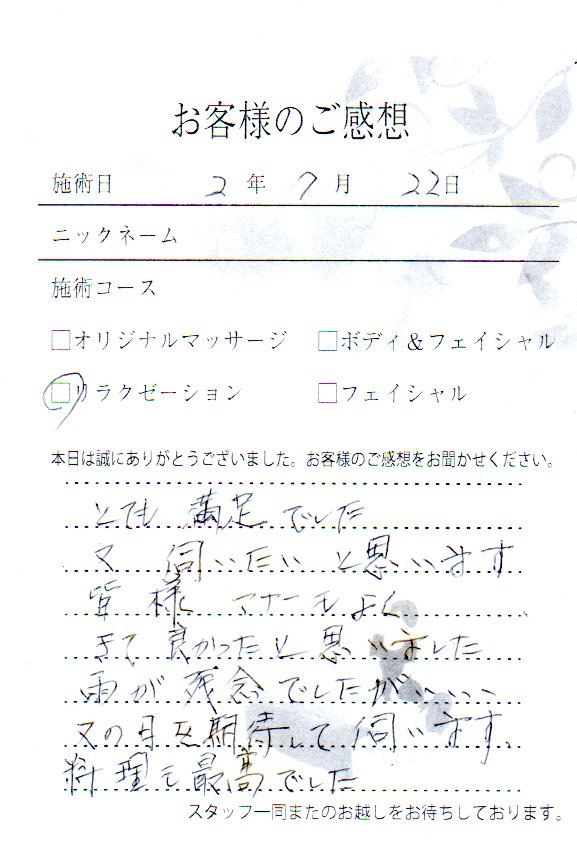 お客様のご感想
施術日 2年 7月 22日
ニックネーム
施術コース
□オリジナルマッサージ □ボディ&フェイシャル
□リラクゼーション □フェイシャル
本日は誠にありがとうございました。お客様のご感想をお聞かせください。
とても 満足でした
又 伺いたいと思います
皆様 マナーもよく
きて 良かったと思いました
雨が残念でしたが、、、、
又の日を期待して伺います、
料理も最高でした
スタッフ一同またのお越しをお待ちしております。